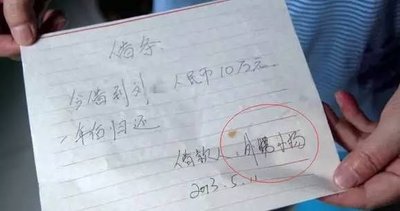 借条
今借到刘 人民币10万元
一年后归还
借款人:
2013.5.11